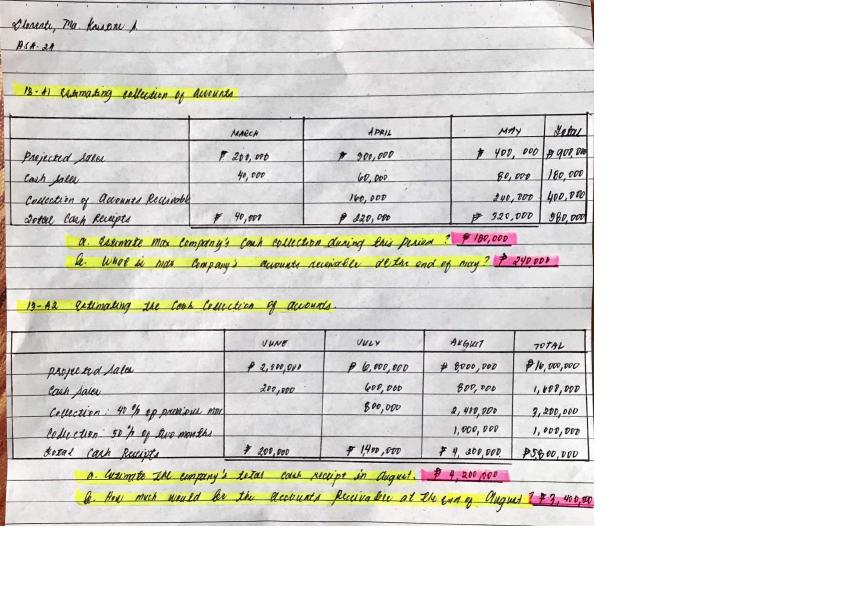 Ma. A.
BSA- 2A
13-A1 Estimating collection of accounts
MARCH APRIL MAY Total
Projected Sales ₱ 200,000 ₱ 300,000 ₱ 400,000 ₱ 900,000
Cash Sales 40,000 60,000 80,000 180,000
Collection of Accounts Receivable 160,000 240,000 400,000
Total Cash Receipts ₱ 40,000 ₱ 220,000 ₱ 320,000 580,000
a. Estimate Max Company's cash collection during this period? ₱ 180,000
b. What is Max Company's accounts receivable at the end of may? ₱ 240,000
13-A2 Estimating the Cash Collection of Accounts.
JUNE JULY AUGUST TOTAL
projected Sales ₱ 2,000,000 ₱ 6,000,000 ₱ 8000,000 ₱16,000,000
Cash Sales 200,000 600,000 800,000 1,600,000
Collection: 40 % of previous 800,000 2,400,000 3,200,000
Collection: 50 % of two months 1,000,000 1,000,000
total Cash Receipts ₱ 200,000 ₱ 1400,000 ₱ 4,200,000 ₱5800,000
a. Estimate company's total cash receipt in August. ₱ 4,200,000
b. How much would be the accounts Receivable at the end of August? ₱ 3,400,000